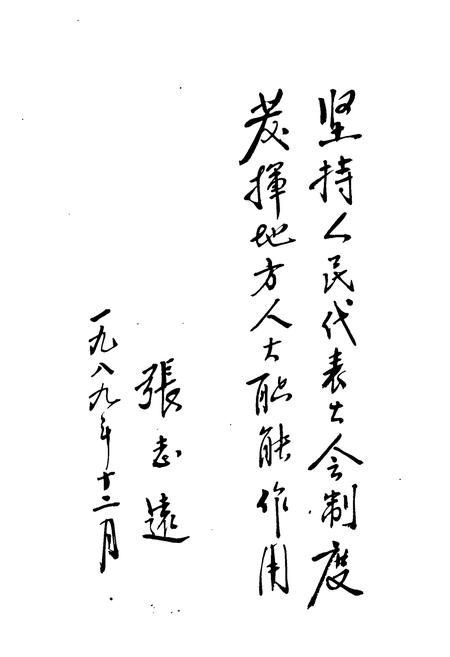 坚持人民代表大会制度
发揮地方人大职能作用
張志遠
一九八九年十二月